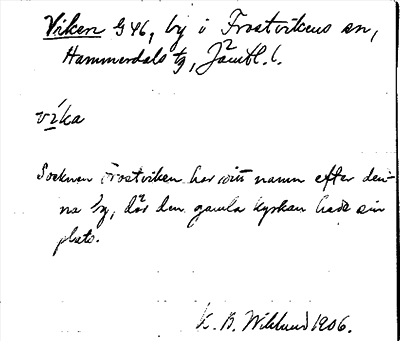 Viken G 46, by i Frostvikens sn,
Hammerdals tg, Jämtl. l.
víka
Socknen Frostviken har sitt namn efter den-
na by, där den gamla kyrkan hade sin
plats.
K. B. Wiklund 1906.